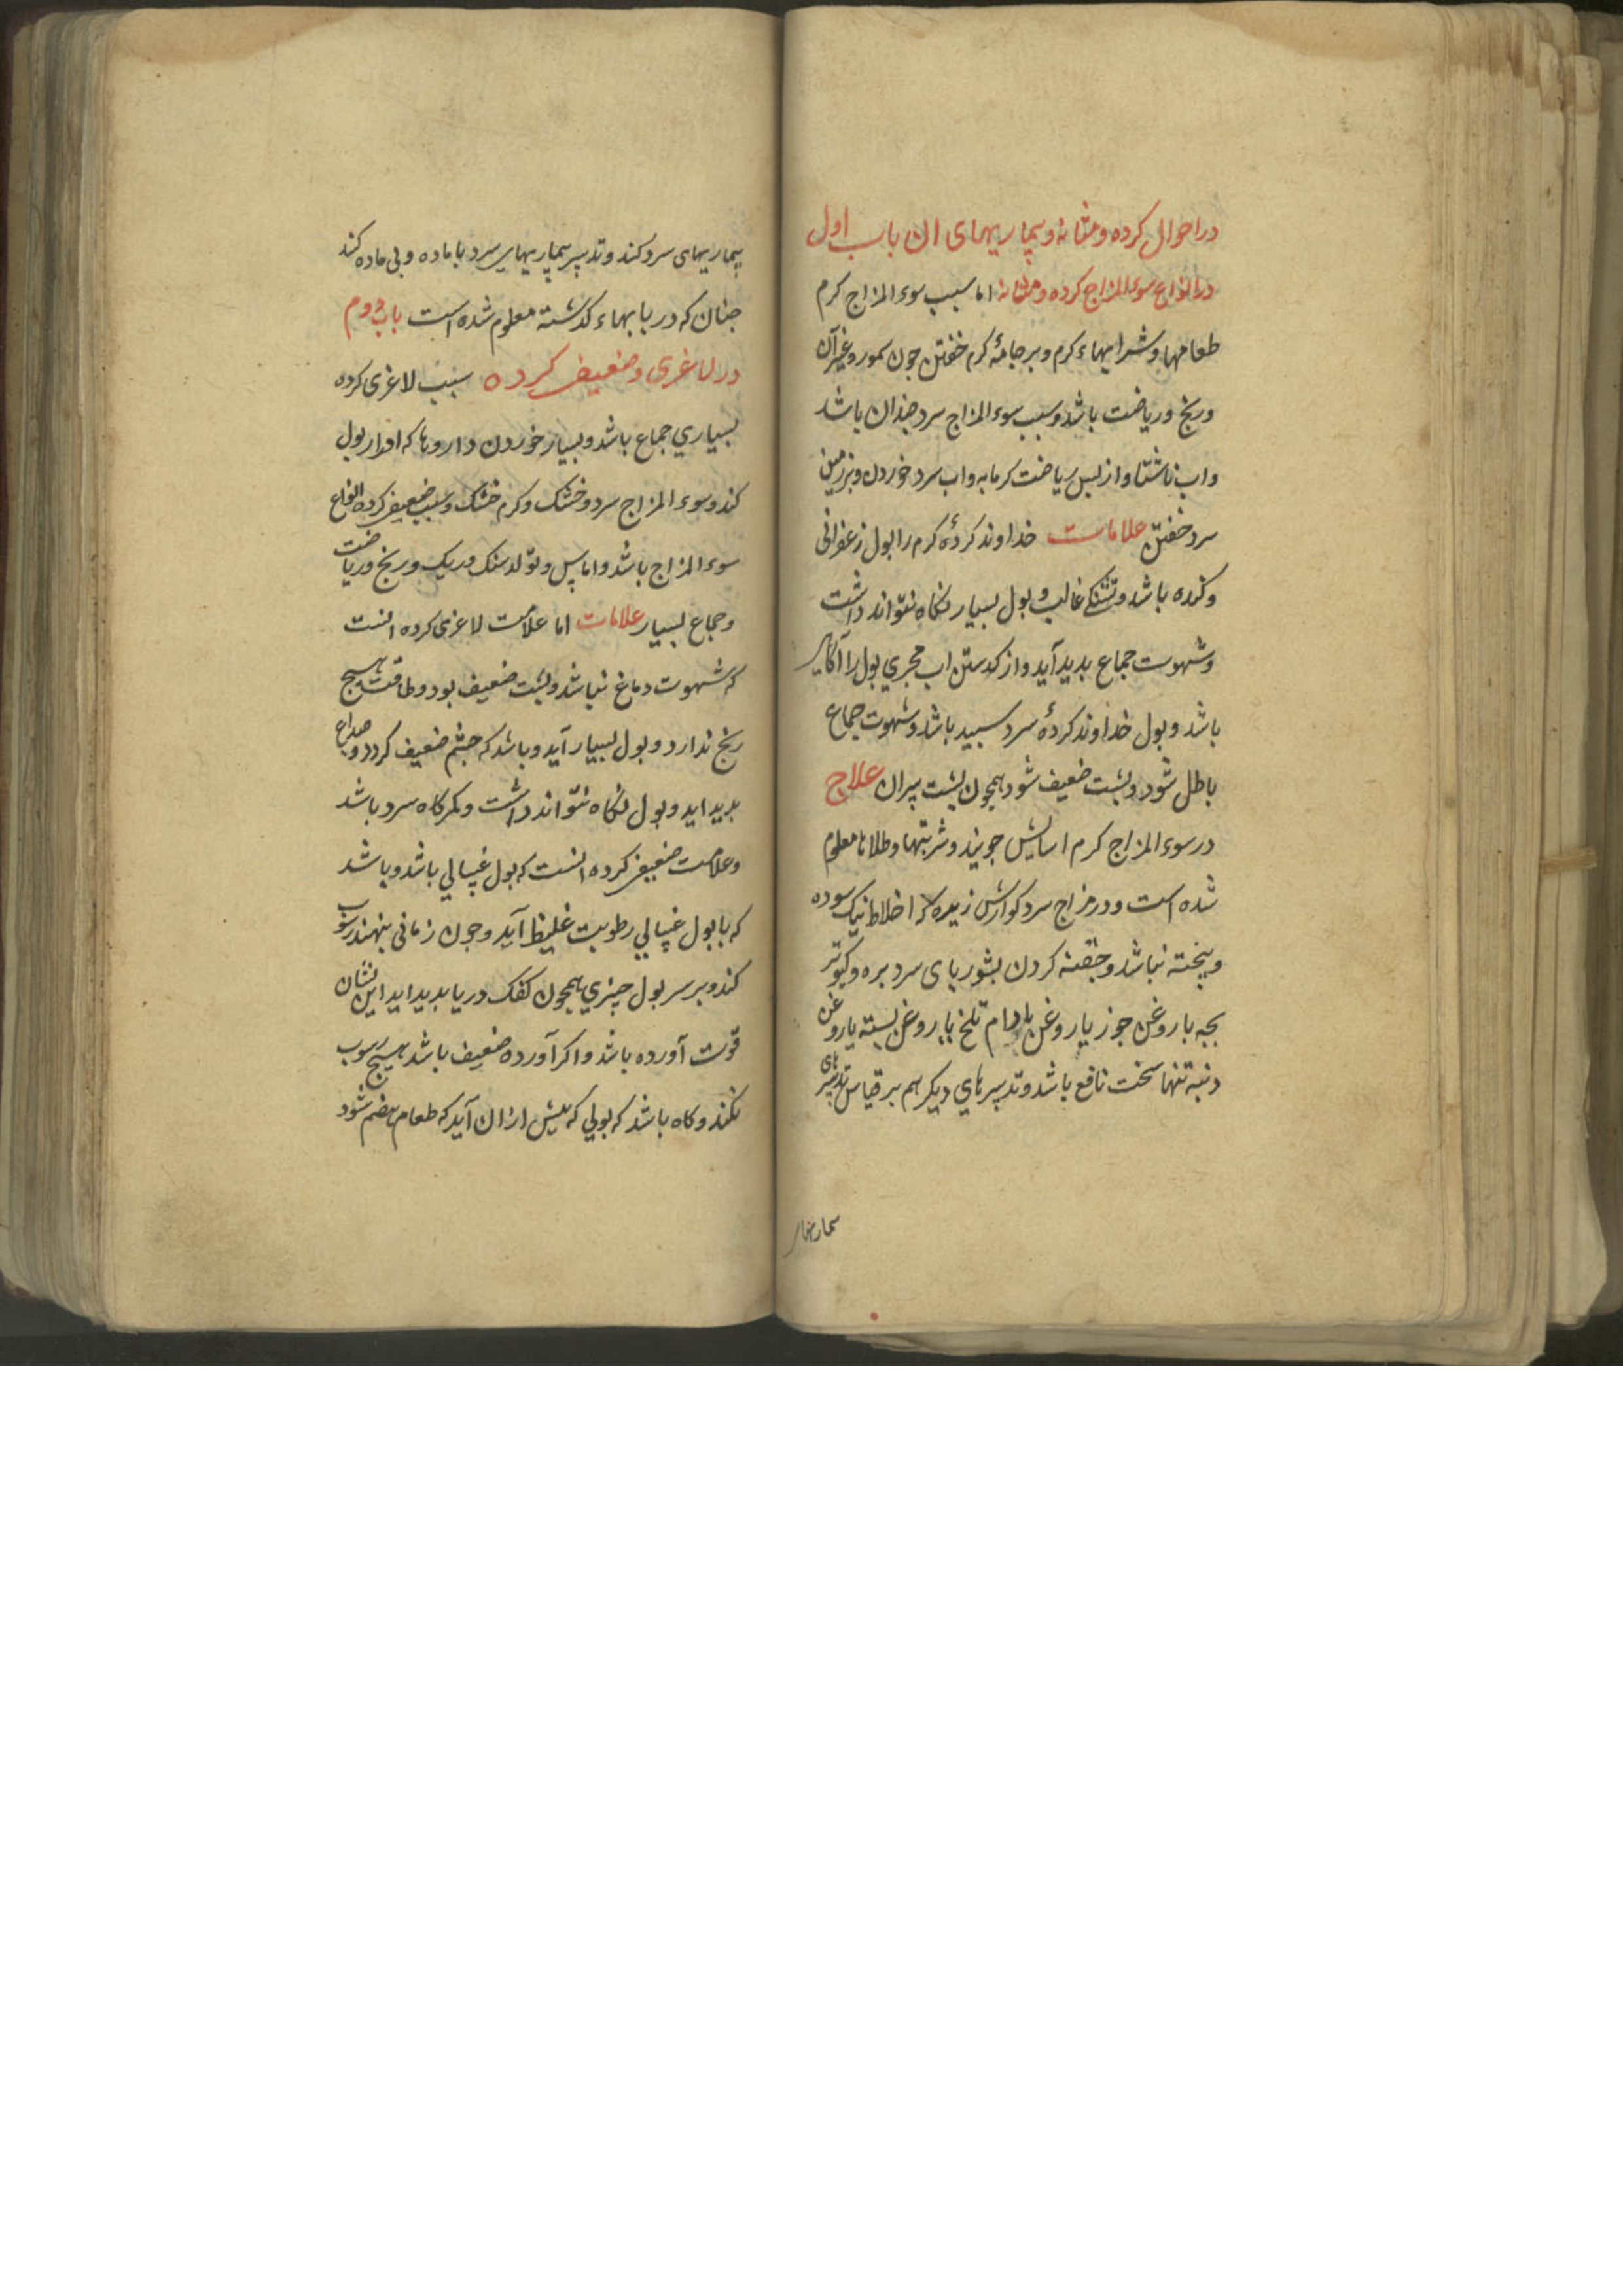 در احوال کرده و مثانه و بیماریهای ان باب اول
در انواع سوء المزاج کرده و مثانه اما سبب سوء المزاج کرم
طعامها و شرابهاء کرم و بر جامهٔ کرم خفتن جون سمور و غیر آن
و رنج و ریاضت باشد و سبب سوء المزاج سرد جندان باشد
واب ناشتا و از پس ریاضت کرمابه واب سرد خوردن و بر زمین
سرد خفتن علامات خداوند کردهٔ کرم را بول زعفرانی
و کنده باشد و تشنکی غالب و بول بسیار نکاه نتواند داشت
و شهوت جماع بدید آید و از کدستن اب مجری بول را آکاهی
باشد و بول خداوند کردهٔ سرد سبید باشد و شهوت جماع
باطل شود و پشت ضعیف شود همچون پشت پیران علاج
در سوء المزاج کرم اسایش جویند و شربتها و طلاها معلوم
شده است و در مزاج سرد کوارش زیره که اخلاط نیک سوده
و بیخته نباشد و حقنه کردن بشوربای سر بره و کبوتر
بجه با روغن جوز یا روغن بادام تلخ یا روغن پسته یا روغن
دنبه تنها سخت نافع باشد و تدبیرهای دیکر هم بر قیاس تدبیرهای
بیماریهای
بیماریهای سرد کند و تدبیر بیماریهای سرد با ماده و بی ماده کند
جنان که در بابهاء کذشته معلوم شده است باب دوم
در لاغری و ضعیفی کرده سبب لاغری کرده
بسیاری جماع باشد و بسیار خوردن داروها که ادرار بول
کند و سوء المزاج سرد و خشک و کرم خشک و سبب ضعیفی کرده انواع
سوء المزاج باشد و اماس و تولد سنک و ریک و رنج و ریاضت
و جماع بسیار علامات اما علامت لاغری کرده انست
که شهوت دماغ نباشد و پشت ضعیف بود و طاقت هیج
رنج ندارد و بول بسیار آید و باشد که جشم ضعیف کردد و صداع
بدید اید و بول نکاه نتواند داشت و کمرکاه سرد باشد
و علامت ضعیفی کرده انست که بول غسالی باشد و باشد
که با بول غسالی رطوبت غلیظ آید و جون زمانی بنهند رسوب
کند و بر سر بول جیزی همچون کفک دریا بدید اید این نشان
قوت آورده باشد و اکر آورده ضعیف باشد هیج رسوب
نکند و کاه باشد که بولی که پیش از ان آید که طعام هضم شود